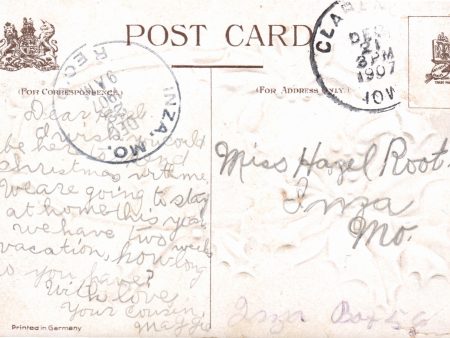 POST CARD
(FOR CORRESPONDENCE)
(FOR ADDRESS ONLY.)
CLA
DEC
21
3 PM
1907
IOW
REC'D
1907
INZA, MO.
Dear Hazel.
I wish you could
be here to spend
Christmas with me
We are going to stay
at home this year
we have two weeks
vacation, how long
do you have?
With love
Your cousin,
Miss Hazel Root.
Inza
Mo.
Inza Box 56
Printed in Germany